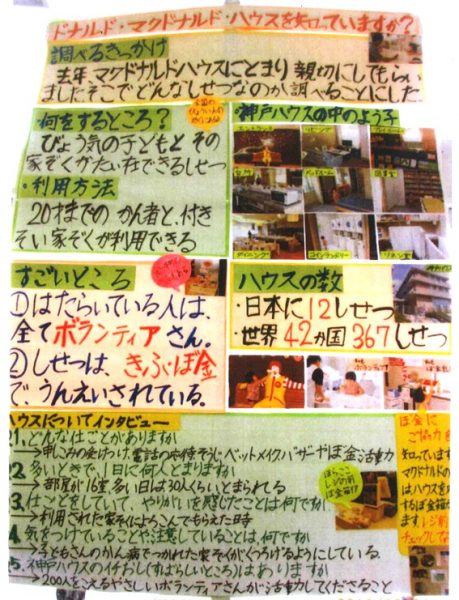 ドナルド・マクドナルド・ハウスを知っていますか?
調べるきっかけ
去年、マクドナルドハウスにとまり親切にしてもらい
ました。そこでどんなしせつなのか調べることにした。
・何をするところ?
びょう気の子どもとその
家ぞくがたい在できるしせつ
・利用方法
20才までのかん者と、付き
そい家ぞくが利用できる
・神戸ハウスの中のよう子
キッチン
ベッドルーム
図書室
ダイニング
コインランドリー
リネン室
すごいところ
①はたらいている人は、
全てボランティアさん。
②しせつは、きふ・ぼ金
で、うんえいされている。
ハウスの数
・日本に12しせつ
・世界42カ国367しせつ
ハウスについてインタビュー
1. どんな仕ごとがありますか
→申しこみの受けつけ、電話の応待、そうじ・ベットメイク・バザーやぼ金活動
2. 多いときで、1日に何人とまりますか
→部屋が16室、多い日は30人くらいとまられる
3. 仕ごとをしていて、やりがいを感じたことは何ですか
→利用された家ぞくによろこんでもらえた時
4. 気をつけていることや注意していることは、何ですか
→子どもさんのかん病でつかれた家ぞくがくつろげるようにしている。
5. 神戸ハウスのイチおし(すばらしいところ)はありますか
→200人をこえるやさしいボランティアさんが活動してくださること
ぼきんばこ
レジの前
ぼ金に
ご協力を
知っています
マクドナルドの
はハウスを
するぼ金箱が
ます レジ前
チェックしてな